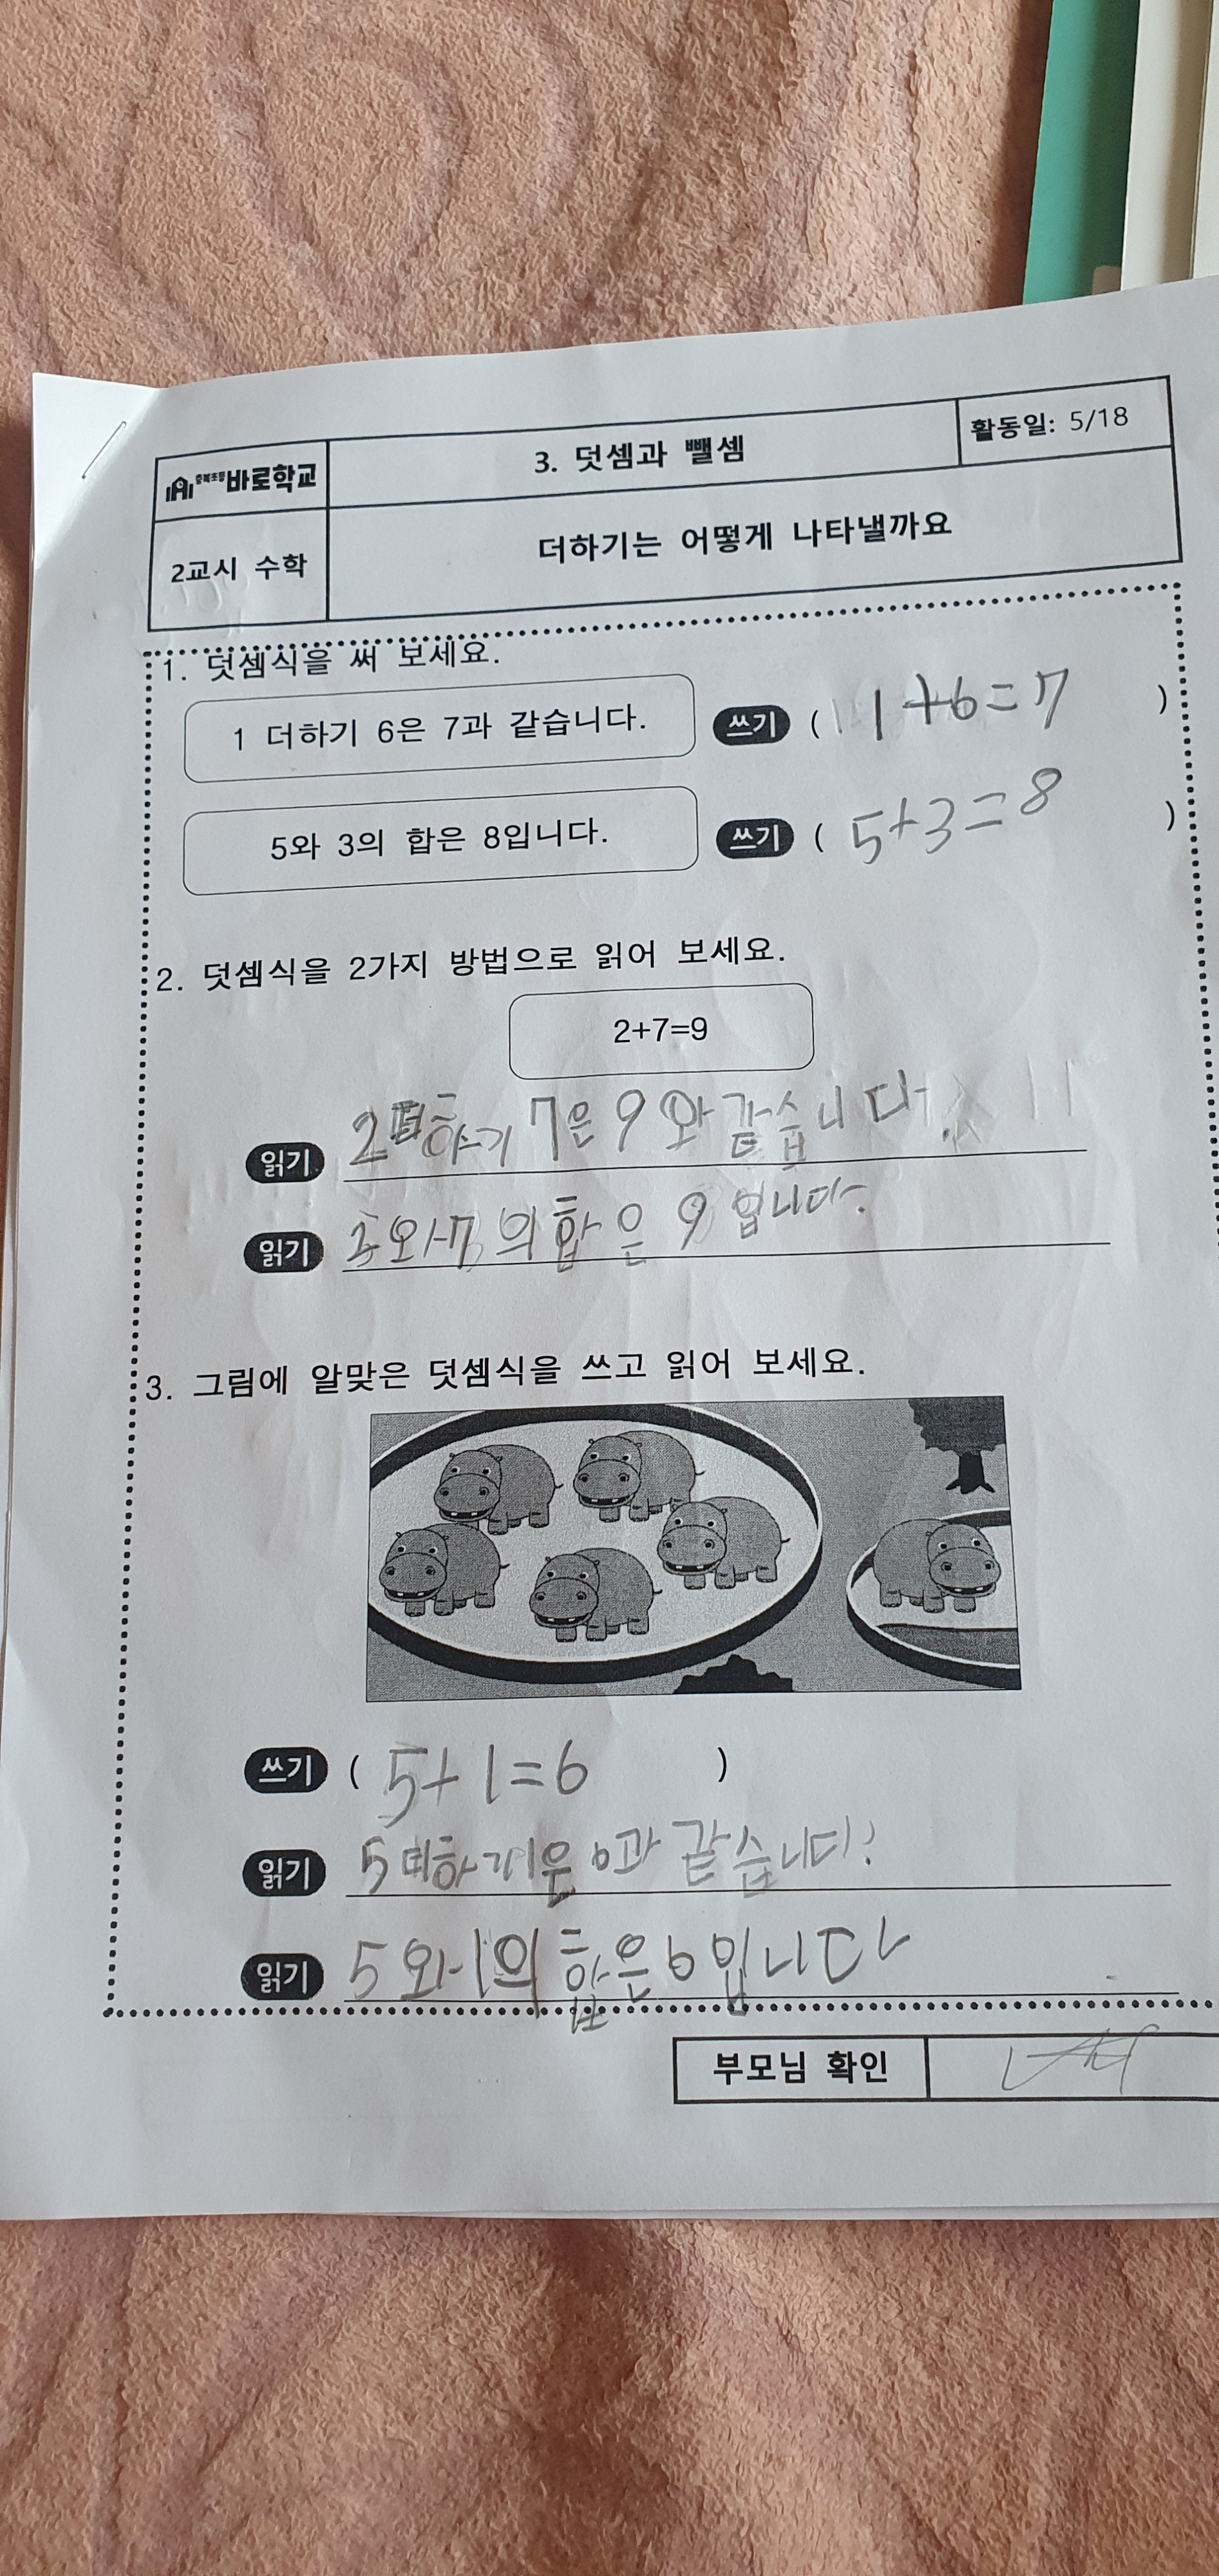 충북초등 바로학교
3. 덧셈과 뺄셈
활동일: 5/18
2교시 수학
더하기는 어떻게 나타낼까요
1. 덧셈식을 써 보세요.
1 더하기 6은 7과 같습니다. 쓰기 ( 1+6=7 )
5와 3의 합은 8입니다. 쓰기 ( 5+3=8 )
2. 덧셈식을 2가지 방법으로 읽어 보세요.
2+7=9
읽기 2더하기 7은 9와 같습니다.
읽기 2와 7의 합은 9입니다.
3. 그림에 알맞은 덧셈식을 쓰고 읽어 보세요.
쓰기 ( 5+1=6 )
읽기 5더하기 1은 6과 같습니다.
읽기 5와 1의 합은 6입니다
부모님 확인